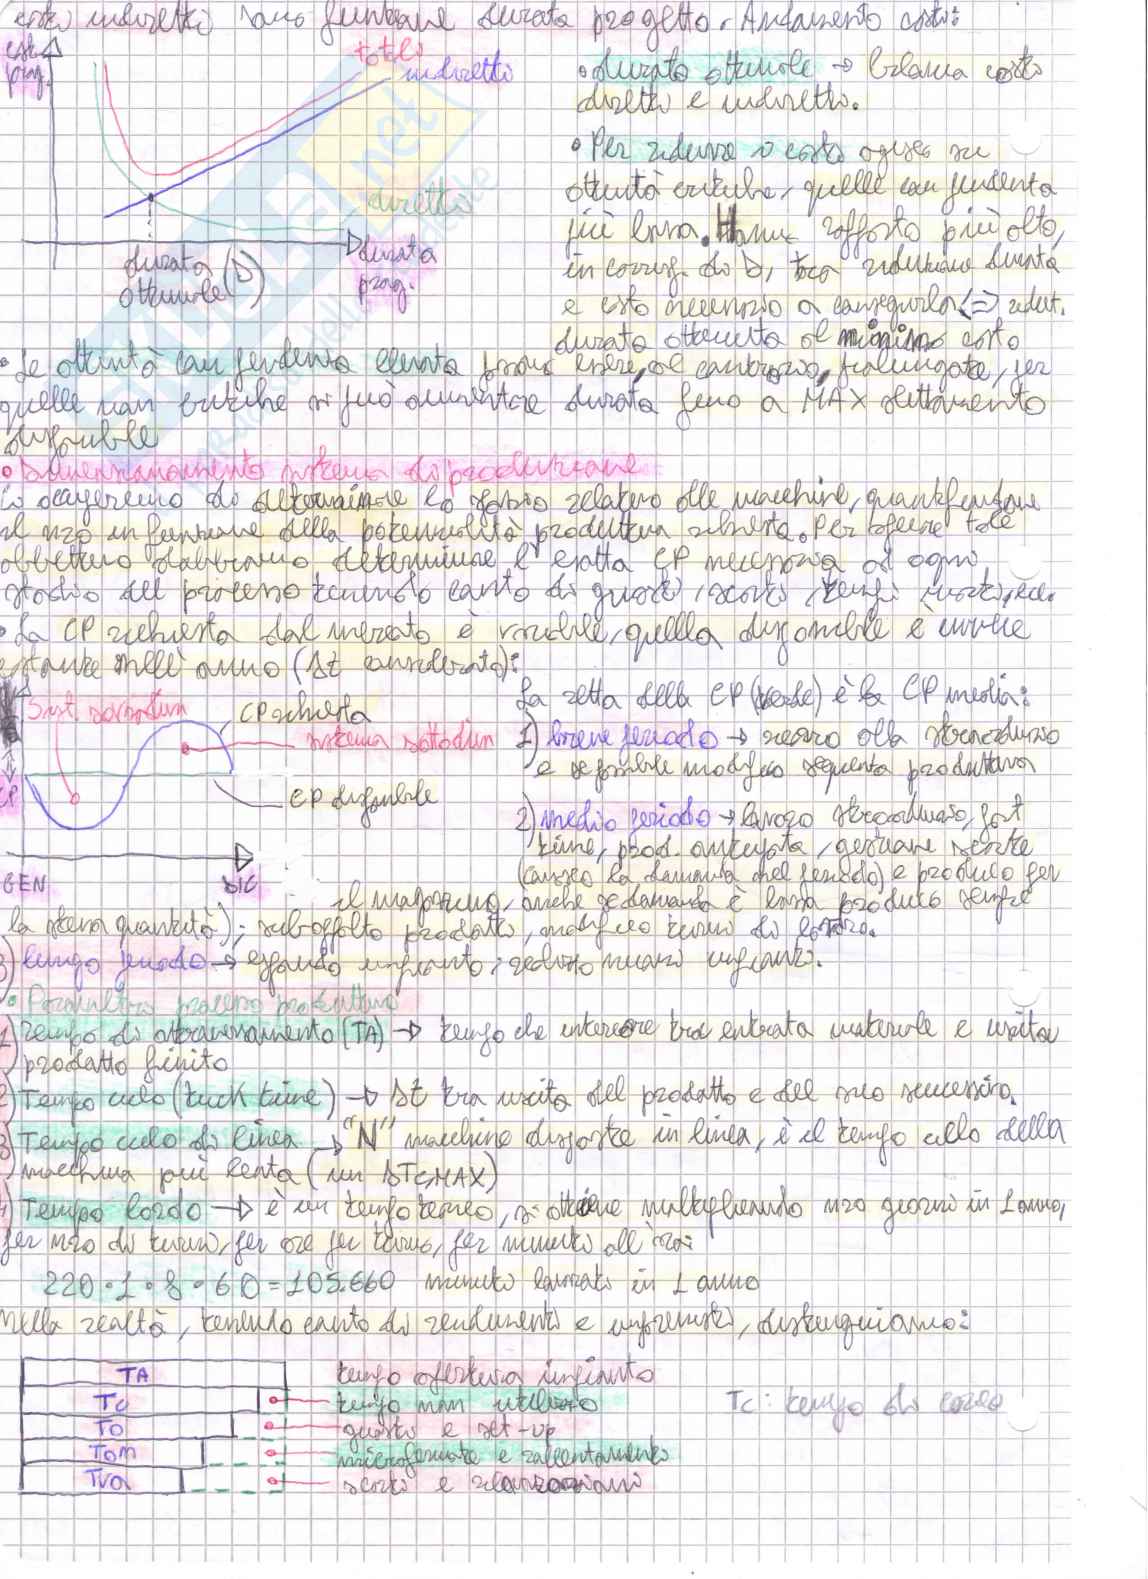 costi indiretti sono funzione durata progetto. Andamento costi:
costi
prog.
totali
indiretti
diretti
durata
ottimale (D)
durata
prog.
• durata ottimale → bilancia costi
diretti e indiretti.
• Per ridurre i costi agisco su
attività critiche, quelle con pendenza
più bassa. Hanno rapporto più alto,
in corrisp. di D, tra riduzione durata
e costo necessario a conseguirla (=) riduz.
durata ottenuta al minimo costo
• Le attività con pendenza elevata possono essere, al contrario, prolungate, per
quelle non critiche si può aumentare durata fino a MAX slittamento
disponibile
• Dimensionamento sistema di produzione
Ci occuperemo di determinare lo spazio relativo alle macchine, quantificandone
il nro in funzione della potenzialità produttiva richiesta. Per tale
obbettivo dobbiamo determinare l'esatta CP necessaria ad ogni
stadio del processo tenendo conto di guasti, scarti, tempi morti, ecc.
• La CP richiesta dal mercato è variabile, quella disponibile è invece
costante nell'anno (Δt considerato):
CP
Sist. sovradim
CP richiesta
sistema sottodim
CP disponibile
GEN
DIC
La retta della CP (verde) è la CP media:
1) breve periodo → ricorro allo straordinario
e se possibile modifico sequenza produttiva
2) medio periodo → lavoro straordinario, part
time, prod. anticipata, gestione scorte
(conosco la domanda nel periodo) e produco per
il magazzino, anche se domanda è bassa produco sempre
la stessa quantità); subappalto prodotti, modifico turni di lavoro.
3) lungo periodo → espando impianto; realizzo nuovi impianti.
• Parametri processo produttivo
1) Tempo di attraversamento (TA) → tempo che intercorre tra entrata materiale e uscita
prodotto finito
2) Tempo ciclo (tack time) → Δt tra uscita del prodotto e del suo successivo.
3) Tempo ciclo di linea → "N" macchine disposte in linea, è il tempo ciclo della
macchina più lenta (un ΔTc,MAX)
4) Tempo lordo → è un tempo teorico, si ottiene moltiplicando nro giorni in 1 anno,
per nro di turni, per ore per turno, per minuti all'ora:
220 • 1 • 8 • 60 = 105.660 minuti lavorati in 1 anno
Nella realtà, tenendo conto di rendimenti e imprevisti, distinguiamo:
TA
tempo apertura impianto
Tc
tempo non utilizzo
Tc: tempo di carico
TO
guasti e set-up
TOM
microfermate e rallentamento
TVA
scarti e rilavorazioni